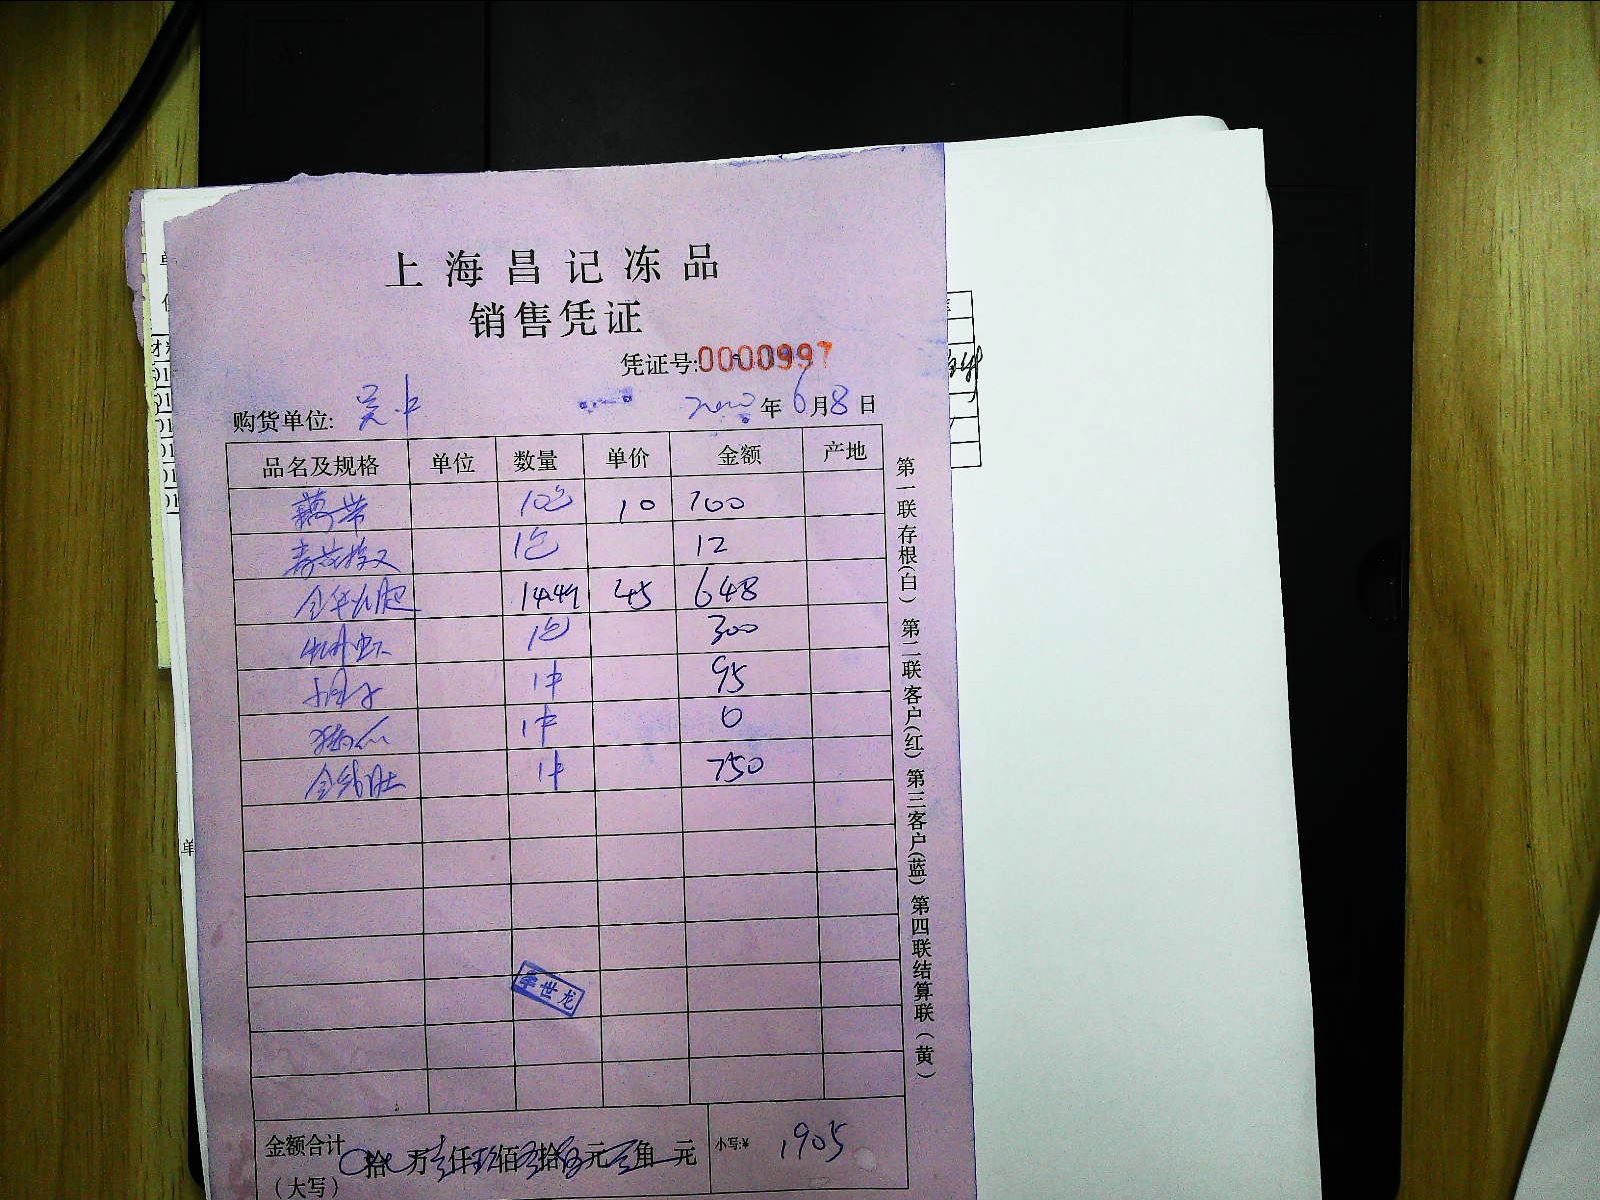 上海昌记冻品
销售凭证
凭证号:0000997
购货单位: 吴中 2020年6月8日
品名及规格 单位 数量 单价 金额 产地
藕带 10包 10 100
1包 12
金华火腿 14.4 45 648
1包 300
1件 95
1件 0
金钱肚 1件 750
李世龙
金额合计 拾 万 壹仟玖佰零拾伍元 角 元 小写:¥ 1905
(大写)
第一联存根(白) 第二联客户(红) 第三客户(蓝) 第四联结算联(黄)